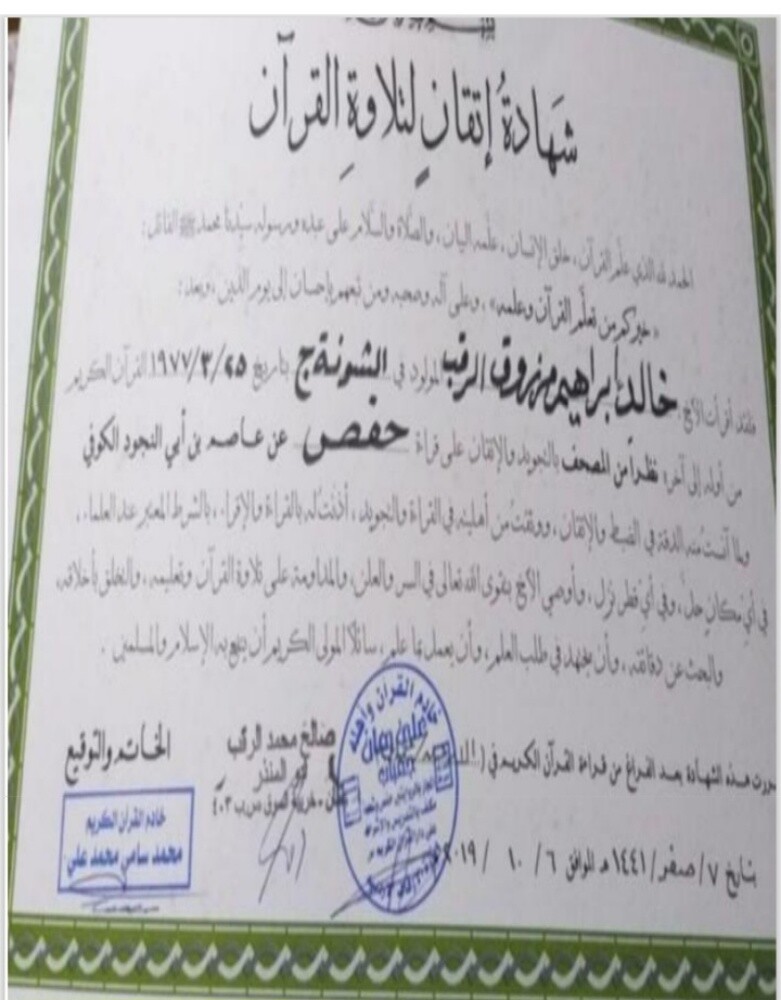 شَهَادَةُ إتقانٍ لتلاوةِ القرآن
الحمد لله الذي علم القرآن ، خلق الإنسان ، علمه البيان ، والصلاة والسلام على عبده ورسوله سيدنا محمد ﷺ القائل :
« خيركم من تعلم القرآن وعلمه » ، وعلى آله وصحبه ومن تبعهم بإحسان إلى يوم الدين ، وبعد :
فقد أقرأت الأخ : خالد إبراهيم مرزوق الرقب المولود في الشونة ج بتاريخ ١٩٧٧/٣/٢٥ القرآن الكريم
من أوله إلى آخره نظراً من المصحف بالتجويد والإتقان على قراءة حفص عن عاصم بن أبي النجود الكوفي
ولما آنست منه الدقة في الضبط والإتقان ، ووثقت من أهليته في القراءة والتجويد ، أذنت له بالقراءة والإقراء ، بالشرط المعتبر عند العلماء ،
في أي مكان حل ، وفي أي قطر نزل ، وأوصي الأخ بتقوى الله تعالى في السر والعلن ، والمداومة على تلاوة القرآن وتعليمه ، والتخلق بأخلاقه ،
والبحث عن دقائقه ، وأن يجتهد في طلب العلم ، وأن يعمل بما علم ، سائلاً المولى الكريم أن ينفع به الإسلام والمسلمين .
حررت هذه الشهادة بعد الفراغ من قراءة القرآن الكريم في (
بتاريخ ٧ / صفر / ١٤٤١ هـ الموافق ٦ / ١٠ / ٢٠١٩
خادم القرآن وأهله
صالح محمد الرقب
أبو المنذر
الخاتم والتوقيع
خادم القرآن الكريم
محمد سامي محمد علي